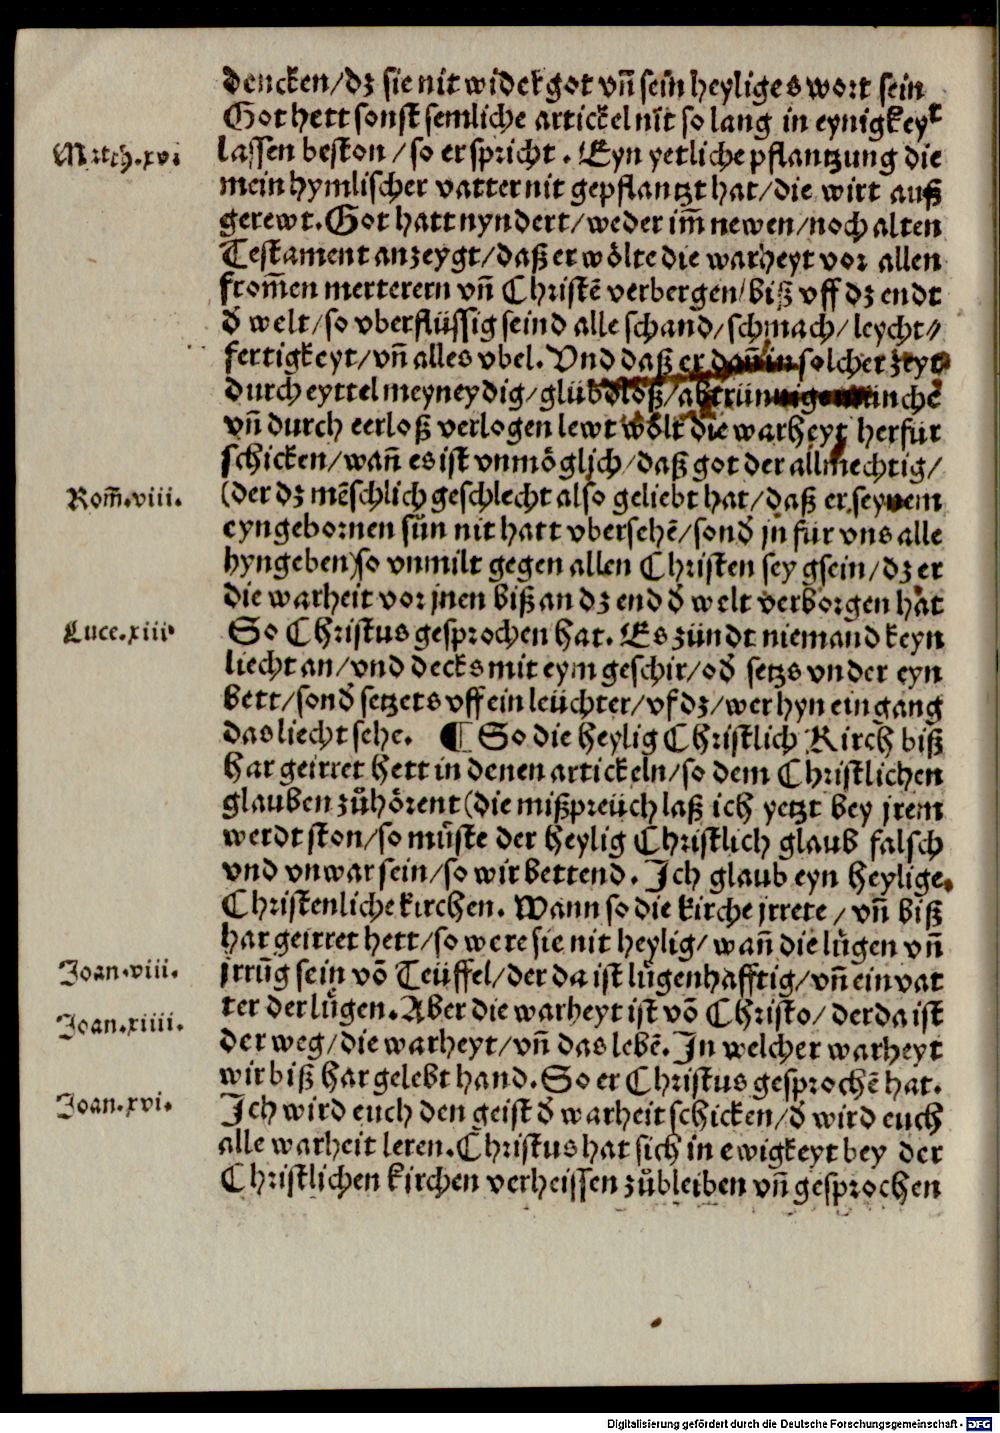 dencken/dz sie nit wider got vn̄ sein heyliges wort sein
Got hett sonst semliche artickel nit so lang in eynigkeyt
Matth.xvi
lassen beston/so er spricht. Eyn yetliche pflantzung die
mein hymlischer vatter nit gepflantzt hat/die wirt auß
gerewt. Got hatt nyndert/weder im̄ newen/noch alten
Testament anzeygt/daß er wölte die warheyt vor allen
from̄en merterern vn̄ Christē verbergen/biß vff dz endt
d̄ welt/so vberflüssig seind alle schand/schmach/leycht//
fertigkeyt/vn̄ alles vbel. Vnd daß er dan̄ in solcher zeyt
durch eyttel meyneydig/glübdloß/abtrünnige münchē
vn̄ durch eerloß verlogen lewt wölt die warheyt herfür
schicken/wan̄ es ist vnmöglich/daß got der allmechtig/
Rom̄.viii.
(der dz mēschlich geschlecht also geliebt hat/daß er seynem
eyngebornen sün nit hatt vbersehē/sond̄ jn für vns alle
hyngeben)so vnmilt gegen allen Christen sey gsein/dz er
die warheit vor jnen biß an dz end d̄ welt verborgen hat
Luce.xiii
So Christus gesprochen hat. Es zündt niemand keyn
liecht an/vnd decks mit eym geschir/od̄ setzs vnder eyn
bett/sond̄ setzets vff ein leüchter/vf dz/wer hyn ein gang
das liecht sehe. ¶ So die heylig Christlich Kirch biß
har geirret hett in denen artickeln/so dem Christlichen
glauben zůhörent(die mißpreüch laß ich yetzt bey jrem
werdt ston/so můste der heylig Christlich glaub falsch
vnd vnwar sein/so wir bettend. Ich glaub eyn heylige
Christenliche kirchen. Wann so die kirche jrrete/vn̄ biß
har geirret hett/so were sie nit heylig/wan̄ die lügen vn̄
Joan.viii.
jrrūg sein vō Teüffel/der da ist lügenhafftig/vn̄ ein vat
ter der lügen. Aber die warheyt ist vō Christo/der da ist
Joan.xiiii.
der weg/die warheyt/vn̄ das lebē. In welcher warheyt
wir biß har gelebt hand. So er Christus gesprochē hat.
Joan.xvi.
Ich wird euch den geist d̄ warheit schicken/d̄ wird euch
alle warheit leren. Christus hat sich in ewigkeyt bey der
Christlichen kirchen verheissen zůbleiben vn̄ gesprochen
Digitalisierung gefördert durch die Deutsche Forschungsgemeinschaft - DFG